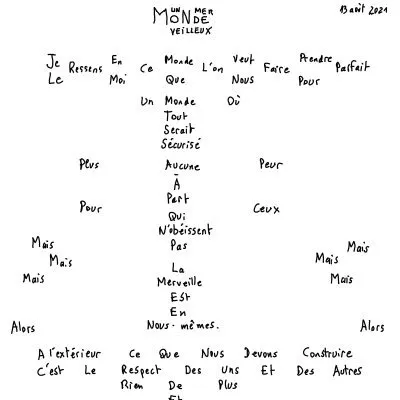 13 avril 2021
UN MER
MONDE
VEILLEUX
Je En Monde Veut Prendre
Ressens Ce L'on Faire Parfait
Le Moi Que Nous Pour
Un Monde Où
Tout
Serait
Sécurisé
Plus Aucune Peur
À
Part
Pour Qui Ceux
N'obéissent
Mais Pas Mais
Mais La Mais
Mais Merveille Mais
Est
En
Alors Nous-mêmes. Alors
A l'extérieur Ce Que Nous Devons Construire
C'est Le Respect Des Uns Et Des Autres
Rien De Plus
Et